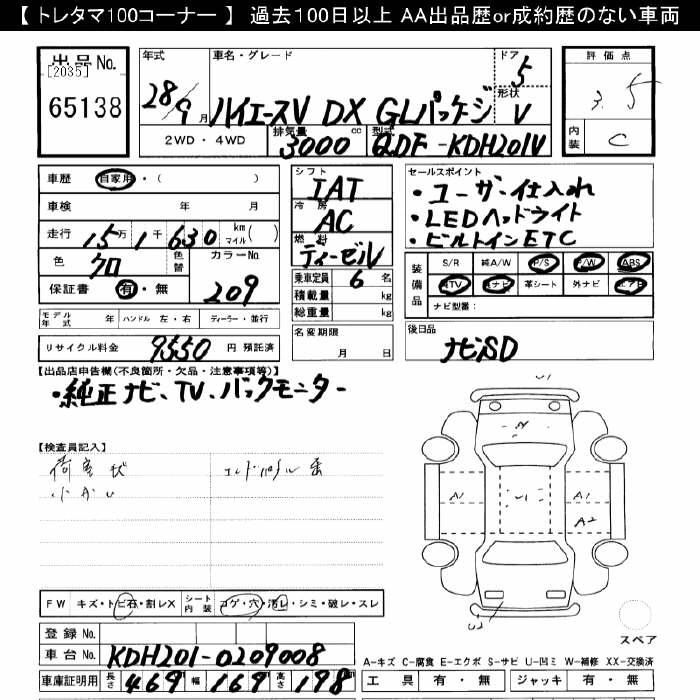 【 トレタマ100コーナー 】 過去100日以上 AA出品歴or成約歴のない車両
出品No.
[2035]
65138
年式 車名・グレード ドア 5
28/9月 ハイエースV DX GLパッケージ 形状 V
2WD・4WD 排気量 3000 cc 型式 QDF-KDH201V
評価点
3.5
内装 C
車歴 自家用・( )
車検 年 月
走行 15万1千630 km マイル( )
色 クロ 色替 カラーNo. 209
保証書 有・無
シフト IAT
冷房 AC
燃料 ディーゼル
乗車定員 6 名
積載量 kg
総重量 kg
セールスポイント
・ユーザー仕入れ
・LEDヘッドライト
・ビルトインETC
装備品 S/R 純A/W P/S P/W ABS
純TV 純ナビ 革シート 外ナビ エアB
ナビ型番:
モデル年式 年 ハンドル 左・右 ディーラー・並行
名変期限 月 日
後日品
ナビSD
リサイクル料金 9550 円 預託済
【出品店申告欄(不良箇所・欠品・注意事項等)】
・純正ナビ、TV、バックモニター
【検査員記入】
荷室状 エンドパネル
小キハ
A1 U1 A1
A2
FW キズ・トビ石・割レX シート内装 コゲ・穴・汚レ・シミ・破レ・スレ
スペア
登録 No.
車台 No. KDH201-0209008
車庫証明用 長さ 469 幅 169 高さ 198
A-キズ C-腐食 E-エクボ S-サビ U-凹ミ W-補修 XX-交換済
工具 有・無 ジャッキ 有・無